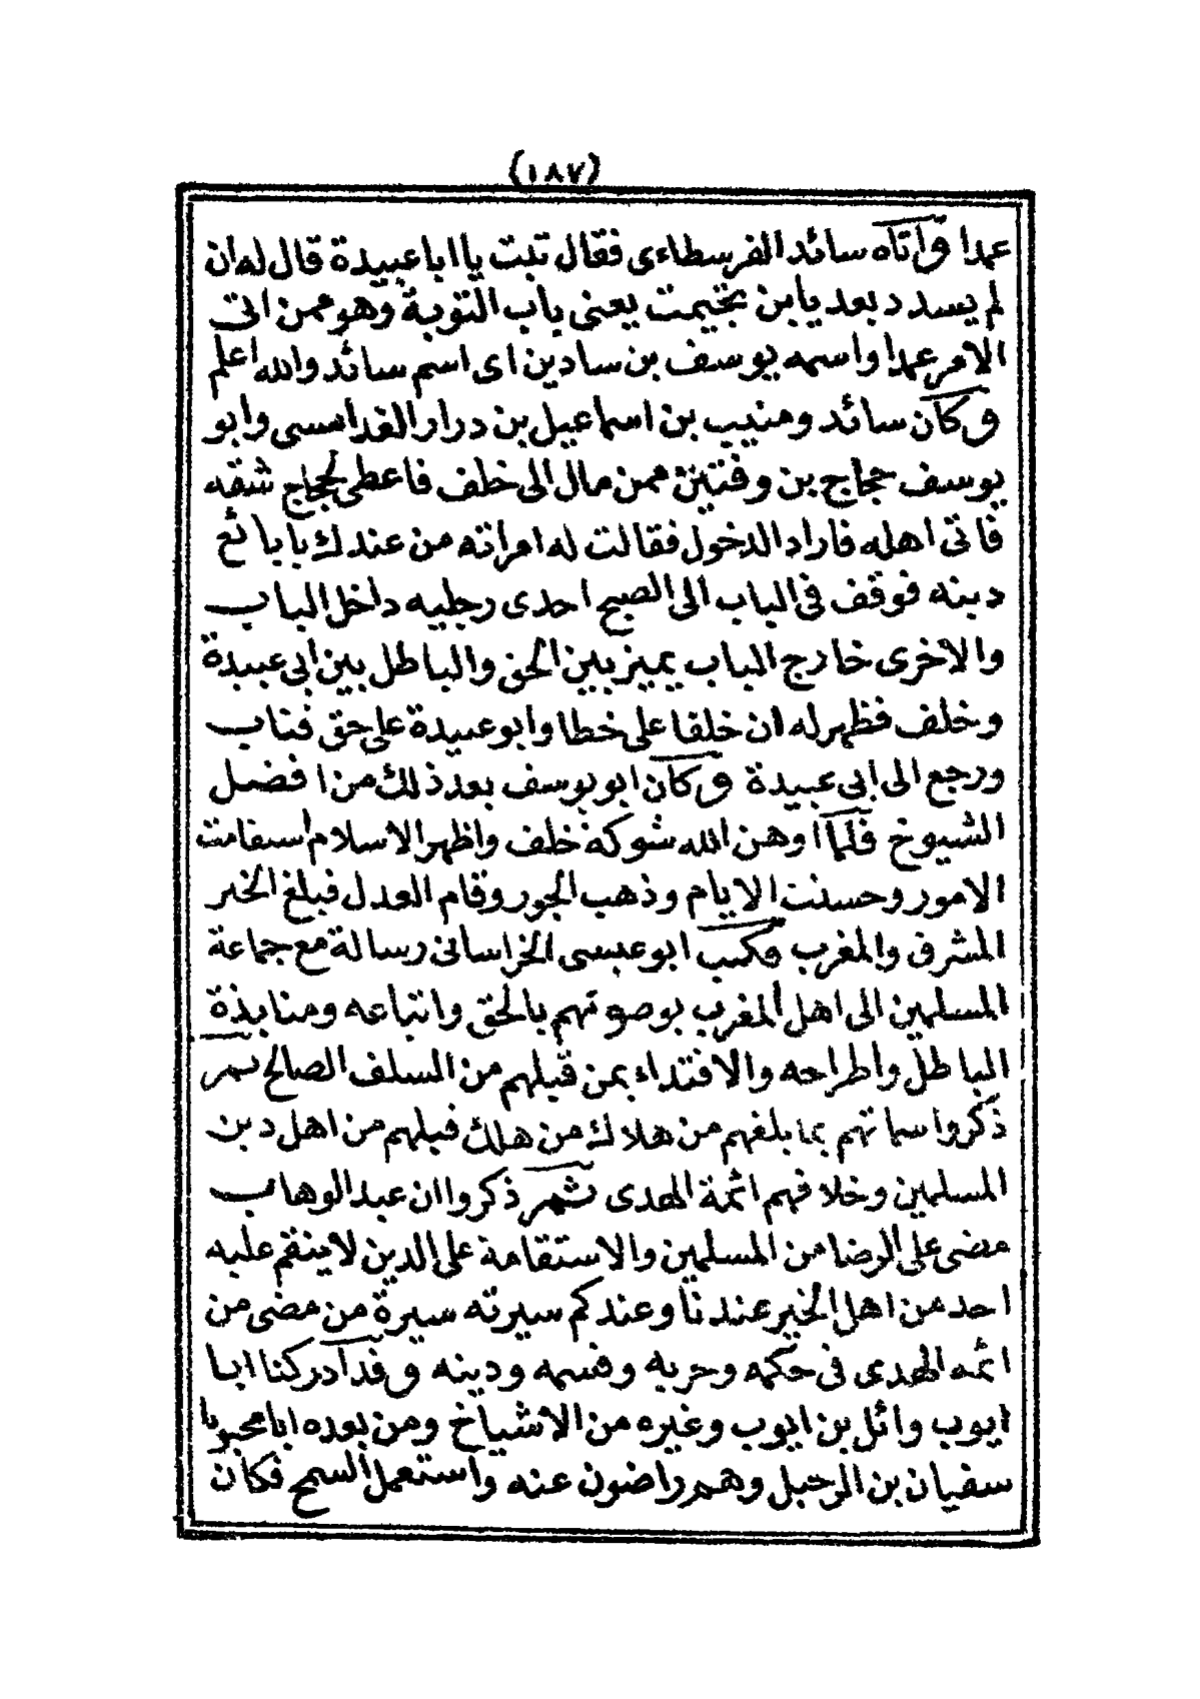 (١٨٧)
عمدا واتاه سائد الفرسطاءى فقال تبت يا ابا عبيدة قال له ان
لم يسدد بعد يا بن يعنى باب التوبة وهو ممن اتى
الامر عمدا واسمه يوسف بن سادين اى اسم سائد والله اعلم
وكان سائد ومنيب بن اسماعيل بن درار الغدامسى وابو
يوسف حجاج بن وفتين ممن مال الى خلف فاعطى لحجاج شقه
فاتى اهله فاراد الدخول فقالت له امراته من عندك يا بائع
دينه فوقف فى الباب الى الصبح احدى رجليه داخل الباب
والاخرى خارج الباب يميز بين الحق والباطل بين ابى عبيدة
وخلف فظهر له ان خلفا على خطا وابو عبيدة على حق فتاب
ورجع الى ابى عبيدة وكان ابو يوسف بعد ذلك من افضل
الشيوخ فلما اوهن الله شوكة خلف واظهر الاسلام استقامت
الامور وحسنت الايام وذهب الجور وقام العدل فبلغ الخبر
المشرق والمغرب فكتب ابو عيسى الخراسانى رسالة مع جماعة
المسلمين الى اهل المغرب يوصونهم بالحق واتباعه ومنابذة
الباطل واطراحه والاقتداء بمن قبلهم من السلف الصالح ثم
ذكروا بما بلغهم من هلاك من هلك قبلهم من اهل دين
المسلمين وخلافهم ائمة الهدى ثم ذكروا ان عبد الوهاب
مضى على الرضا من المسلمين والاستقامة على الدين لا ينقم عليه
احد من اهل الخير عندنا وعندكم سيرته سيرة من مضى من
ائمة الهدى فى حكمه وحربه وقسمه ودينه وقد ادركنا ابا
ايوب وائل بن ايوب وغيره من الاشياخ ومن بعده ابا محبوبا
سفيان بن الرحيل وهم راضون عنه واستعمل السمح فكان